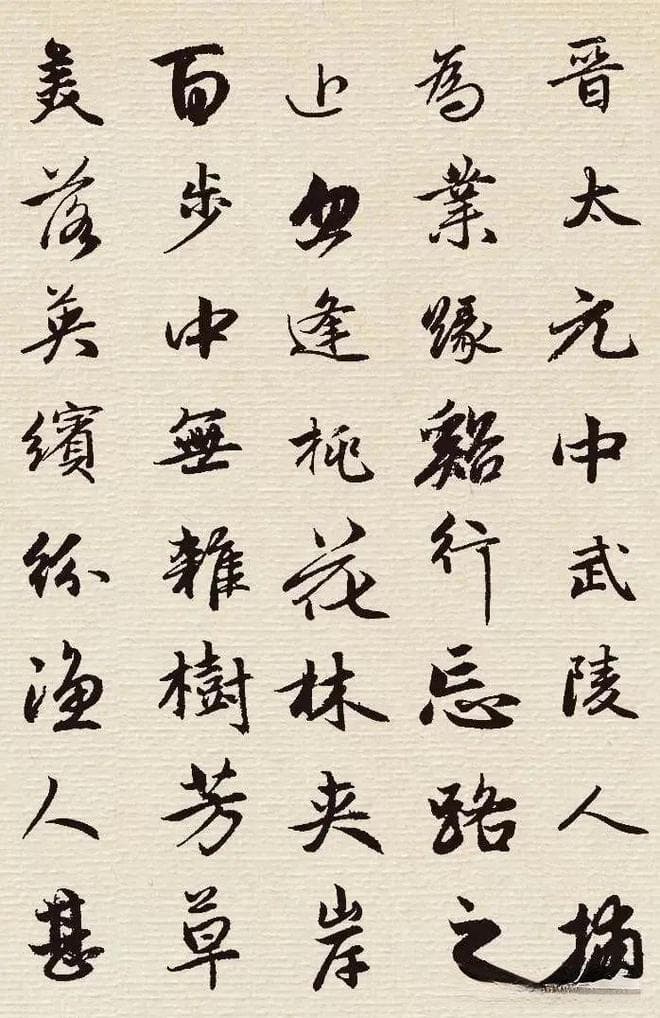 晋太元中武陵人捕
為業緣谿行忘路之
近忽逢桃花林夾岸
百步中無雜樹芳草
美落英繽紛漁人甚